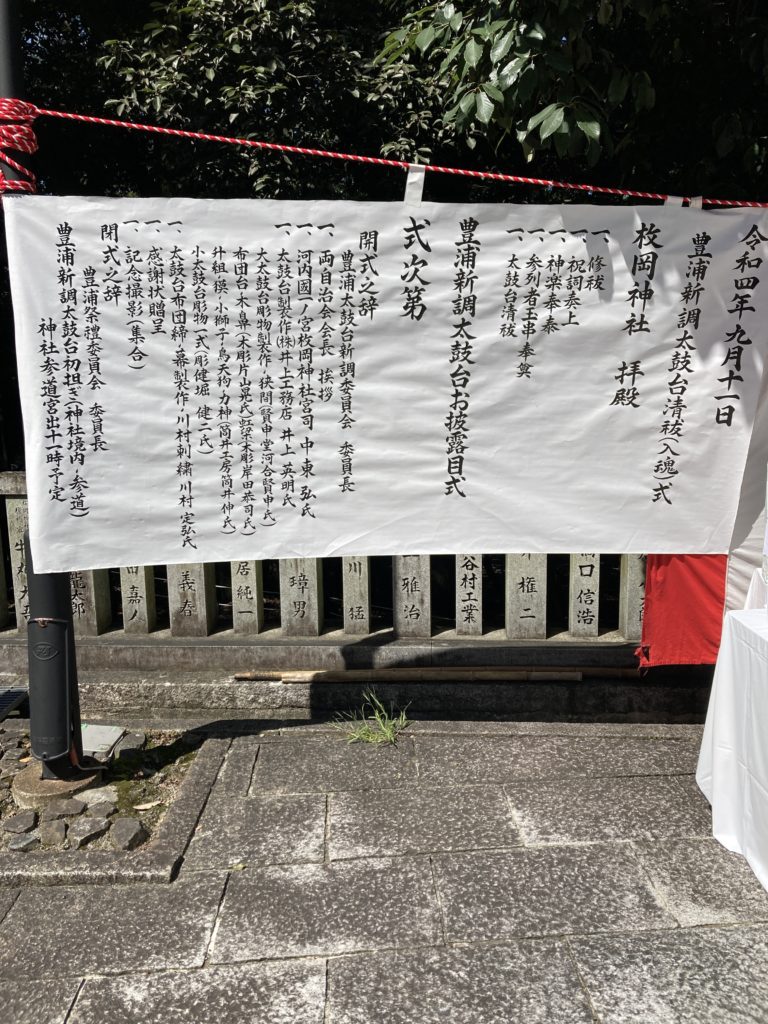 令和四年 九月十一日
豊浦新調太鼓台清祓(入魂)式
枚岡神社 拝殿
一、修祓
一、祝詞奏上
一、神楽奉奏
一、参列者玉串奉奠
一、太鼓台清祓
豊浦新調太鼓台お披露目式
式次第
開式之辞
豊浦太鼓台新調委員会 委員長
一、両自治会会長 挨拶
河内國一ノ宮枚岡神社宮司 中東 弘氏
一、太鼓台製作(株)井上工務店 井上 英明氏
大太鼓台彫物製作 狭間(賢申堂河合賢申氏)
布団台・木鼻(木彫片山晃氏)
木彫岸田恭司氏)
升組・小獅子・烏天狗・力神(筒井工房筒井伸氏)
小太鼓台彫物一式(彫健堀 健二氏)
一、太鼓台布団締・幕製作・川村刺繍 川村 定弘氏
一、感謝状贈呈
一、記念撮影(集合)
閉式之辞
豊浦祭禮委員会 委員長
豊浦新調太鼓台初担ぎ(神社境内・参道)
神社参道宮出十一時予定
龍太郎
田 嘉ノ
義春
居 純一
璋男
川 猛
雅治
谷村工業
権二
口 信浩